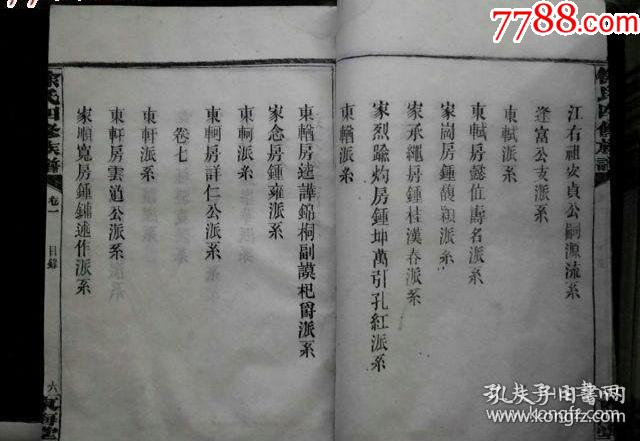 7788.com
7788.com
江右祖安貞公嗣源流系
逢富公支派系
東軾派系
東軾房懿值壽名派系
家岡房鍾馥穎派系
家承繩房鍾桂漢春派系
家烈踰灼房鍾坤萬引孔紅派系
東輶派系
東輶房逑譁錦桐副謨杞爵派系
家念房鍾雍派系
東軻派系
東軻房詳仁公派系
卷七
東軒派系
東軒房雲逍公派系
家順寬房鍾鏽述作派系
氏四修族譜
卷一
目錄
六
孔夫子旧书网
kongfz.com